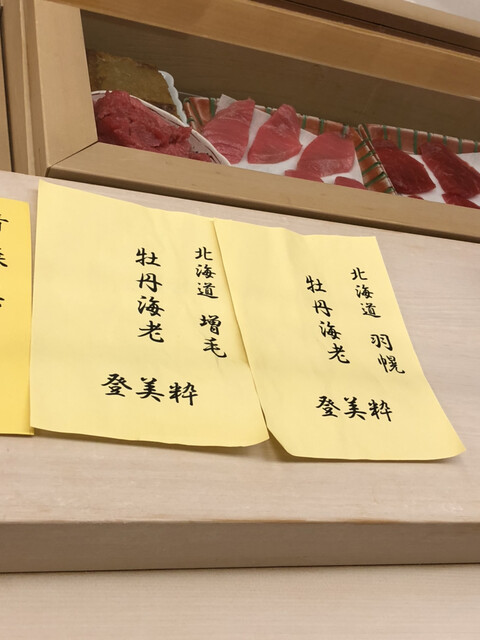 北海道 増毛
牡丹海老
登美粋
北海道 羽幌
牡丹海老
登美粋